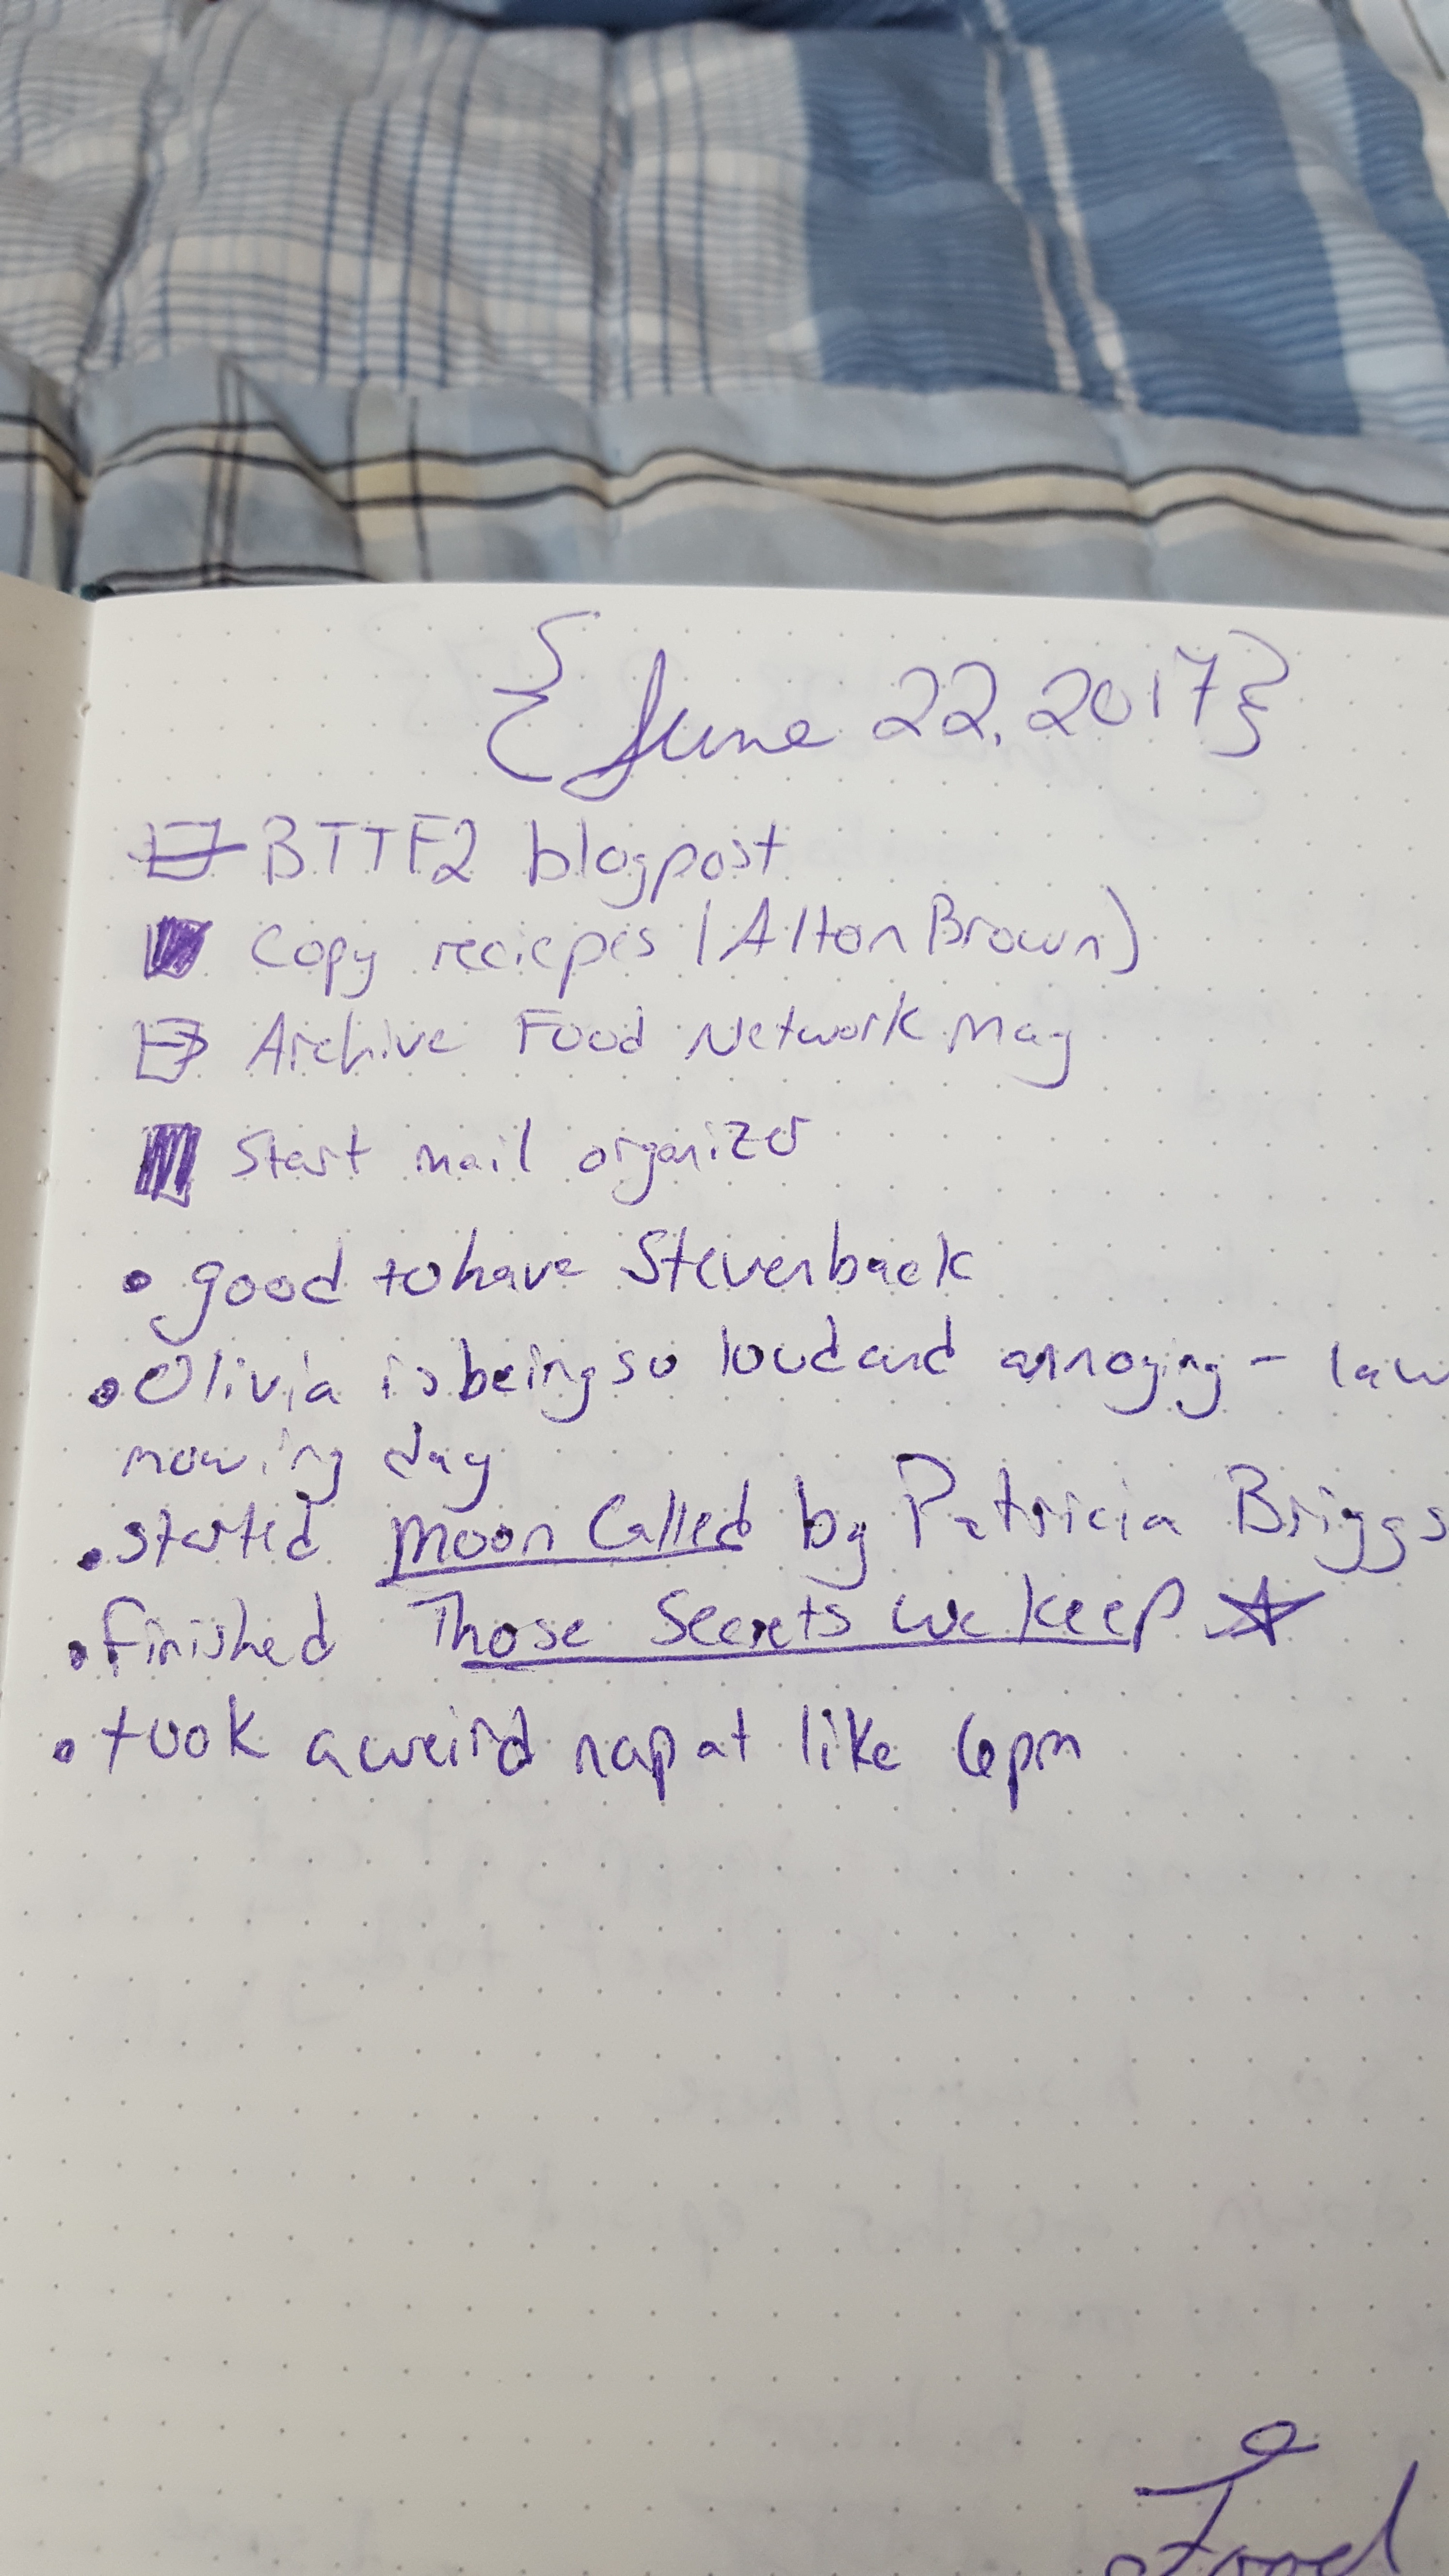 {June 22, 2017}
BTTF2 blogpost
Copy reciepes (Alton Brown)
Archive Food Network Mag
Start mail organizer
• good to have Steven back
• Olivia is being so loud and annoying - law
mowing day
• started Moon Called by Patricia Briggs
• finished Those Secrets We Keep ☆
• took a weird nap at like 6pm
Food